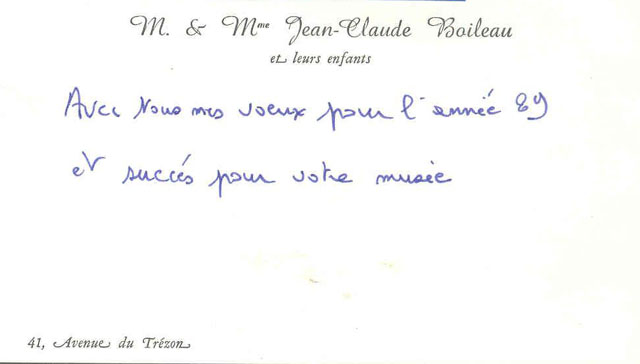 M. & Mme Jean-Claude Boileau
et leurs enfants
Avec Nous mes voeux pour l'année 89
et succés pour votre musée
41, Avenue du Trézon